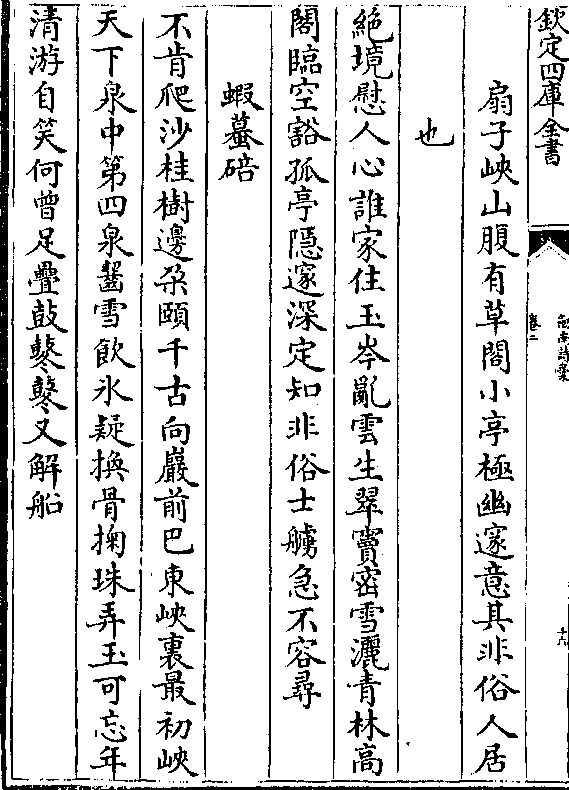 欽定四庫全書
劍南詩槀
卷二
十六
扇子峽山腹有草閣小亭極幽邃意其非俗人居
也
絶境慰人心誰家住玉岑亂雲生翠竇密雪灑青林高
閣臨空豁孤亭隱邃深定知非俗士艣急不容尋
蝦蟇碚
不肯爬沙桂樹邊朶頤千古向巖前巴東峽裏最初峽
天下泉中第四泉齧雪飲冰疑換骨掬珠弄玉可忘年
清游自笑何曾足疊鼓鼕鼕又解船